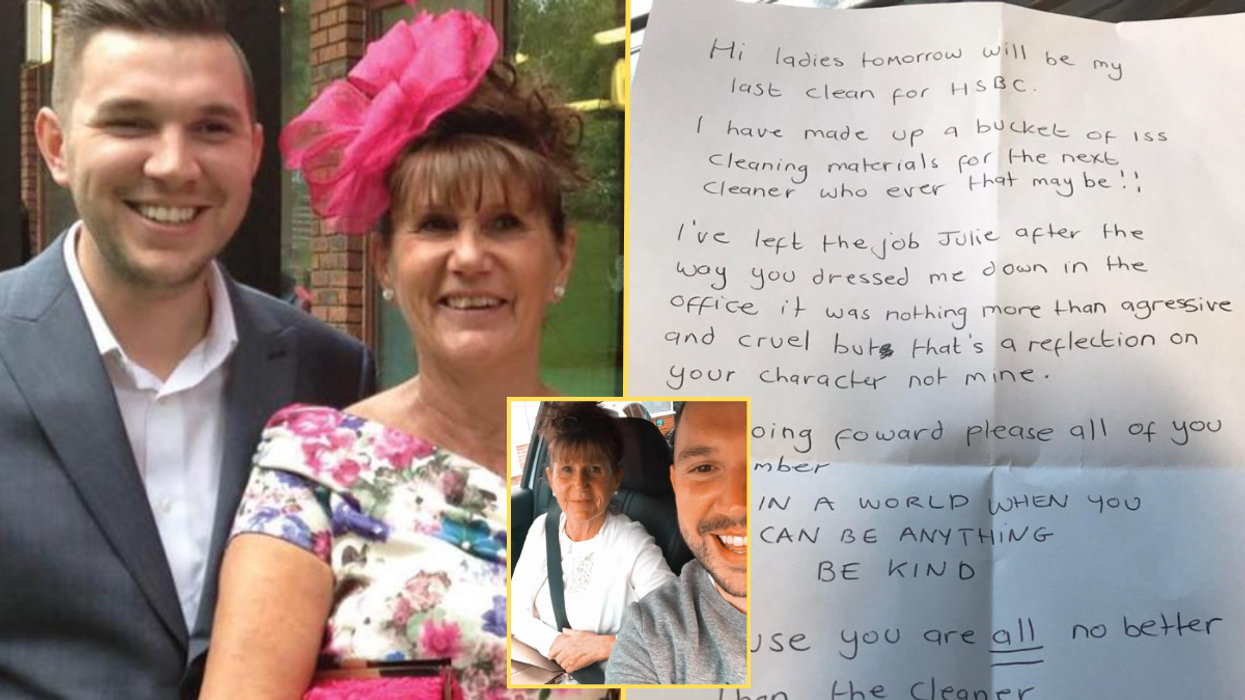 Hi ladies tomorrow will be my
last clean for HSBC.
I have made up a bucket of iss
cleaning materials for the next
cleaner who ever that may be!!
I've left the job Julie after the
way you dressed me down in the
office it was nothing more than agressive
and cruel but that's a reflection on
your character not mine.
oing foward please all of you
mber
IN A WORLD WHEN YOU
CAN BE ANYTHING
BE KIND
use you are all no better
than the cleaner